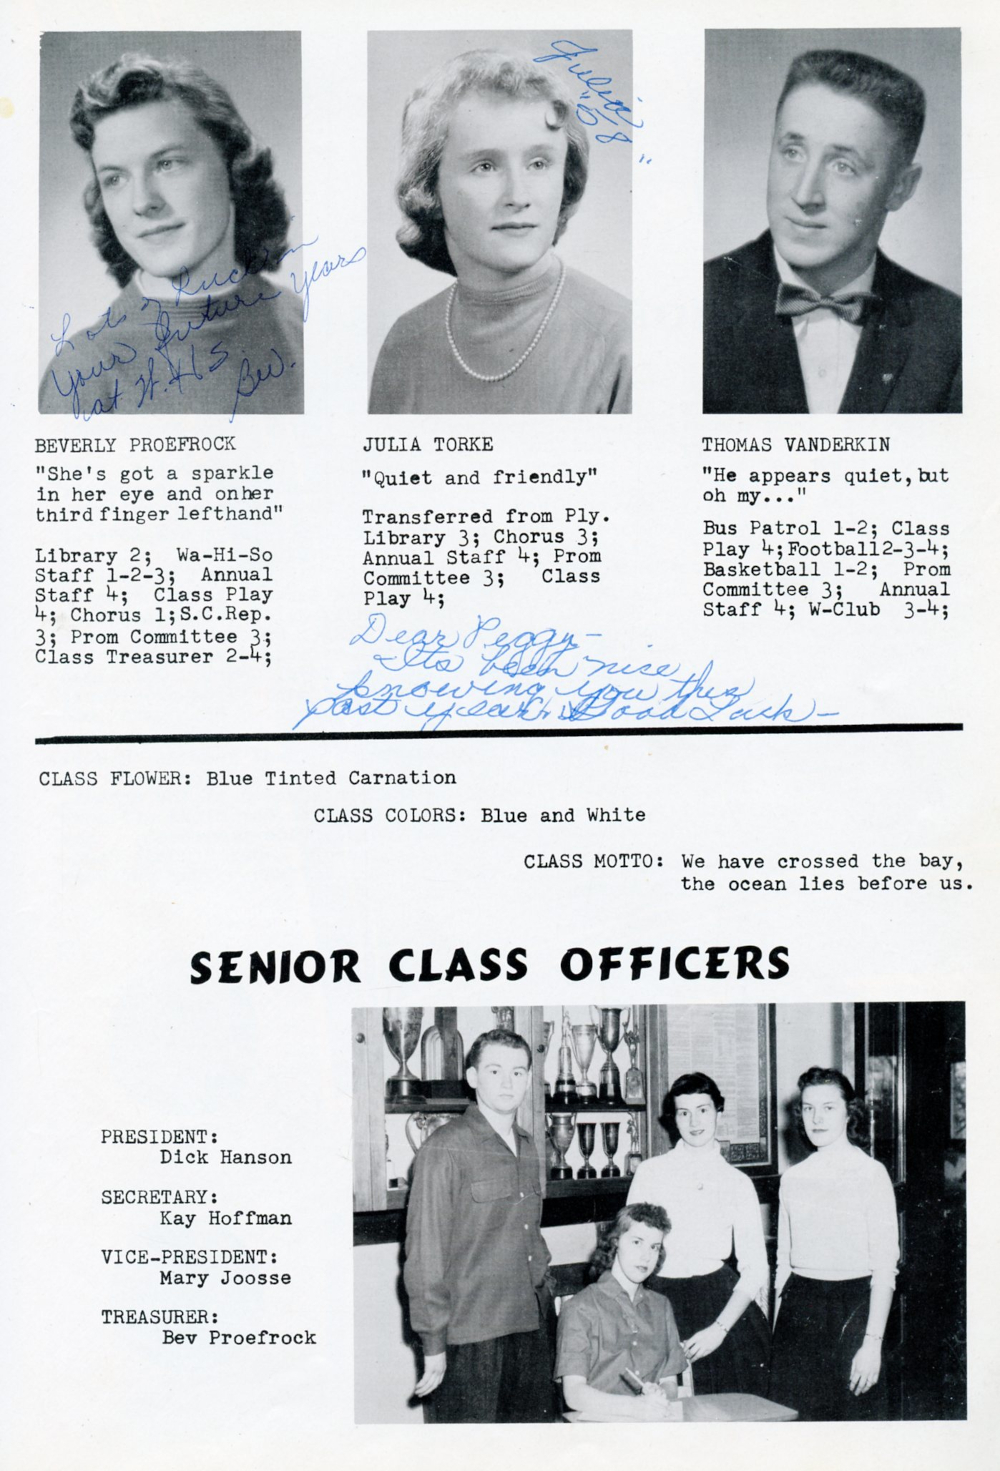 Julia
"58"
Lots of Luck in
Your future Years
at W.H.S
Bev.
BEVERLY PROEFROCK
"She's got a sparkle
in her eye and onher
third finger lefthand"
Library 2; Wa-Hi-So
Staff 1-2-3; Annual
Staff 4; Class Play
4; Chorus 1;S.C.Rep.
3; Prom Committee 3;
Class Treasurer 2-4;
JULIA TORKE
"Quiet and friendly"
Transferred from Ply.
Library 3; Chorus 3;
Annual Staff 4; Prom
Committee 3; Class
Play 4;
Dear Peggy-
Its been nice
knowing you this
past year. Good Luck-
THOMAS VANDERKIN
"He appears quiet,but
oh my..."
Bus Patrol 1-2; Class
Play 4;Football2-3-4;
Basketball 1-2; Prom
Committee 3; Annual
Staff 4; W-Club 3-4;
CLASS FLOWER: Blue Tinted Carnation
CLASS COLORS: Blue and White
CLASS MOTTO: We have crossed the bay,
the ocean lies before us.
SENIOR CLASS OFFICERS
PRESIDENT:
Dick Hanson
SECRETARY:
Kay Hoffman
VICE-PRESIDENT:
Mary Joosse
TREASURER:
Bev Proefrock